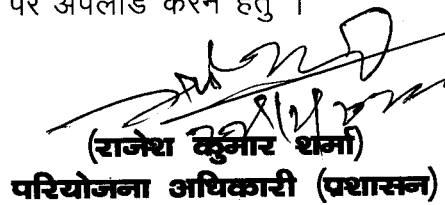 पर अपलोड करने हेतु ।
(राजेश कुमार शर्मा)
परियोजना अधिकारी (प्रशासन)